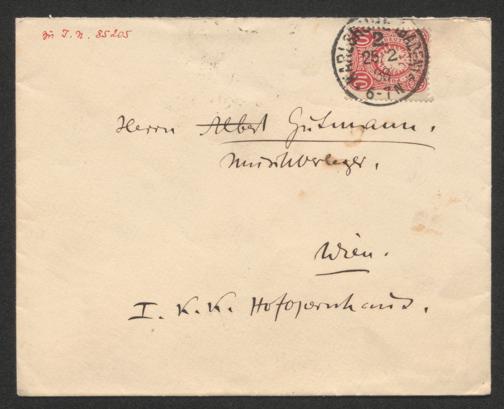 zu I. N. 85205
KARLSRUHE (BADEN)
2
25 2
6-7N
10 10
Herrn Albert Gutmann.
Musikverleger.
Wien.
I. K. K. Hofopernhaus.